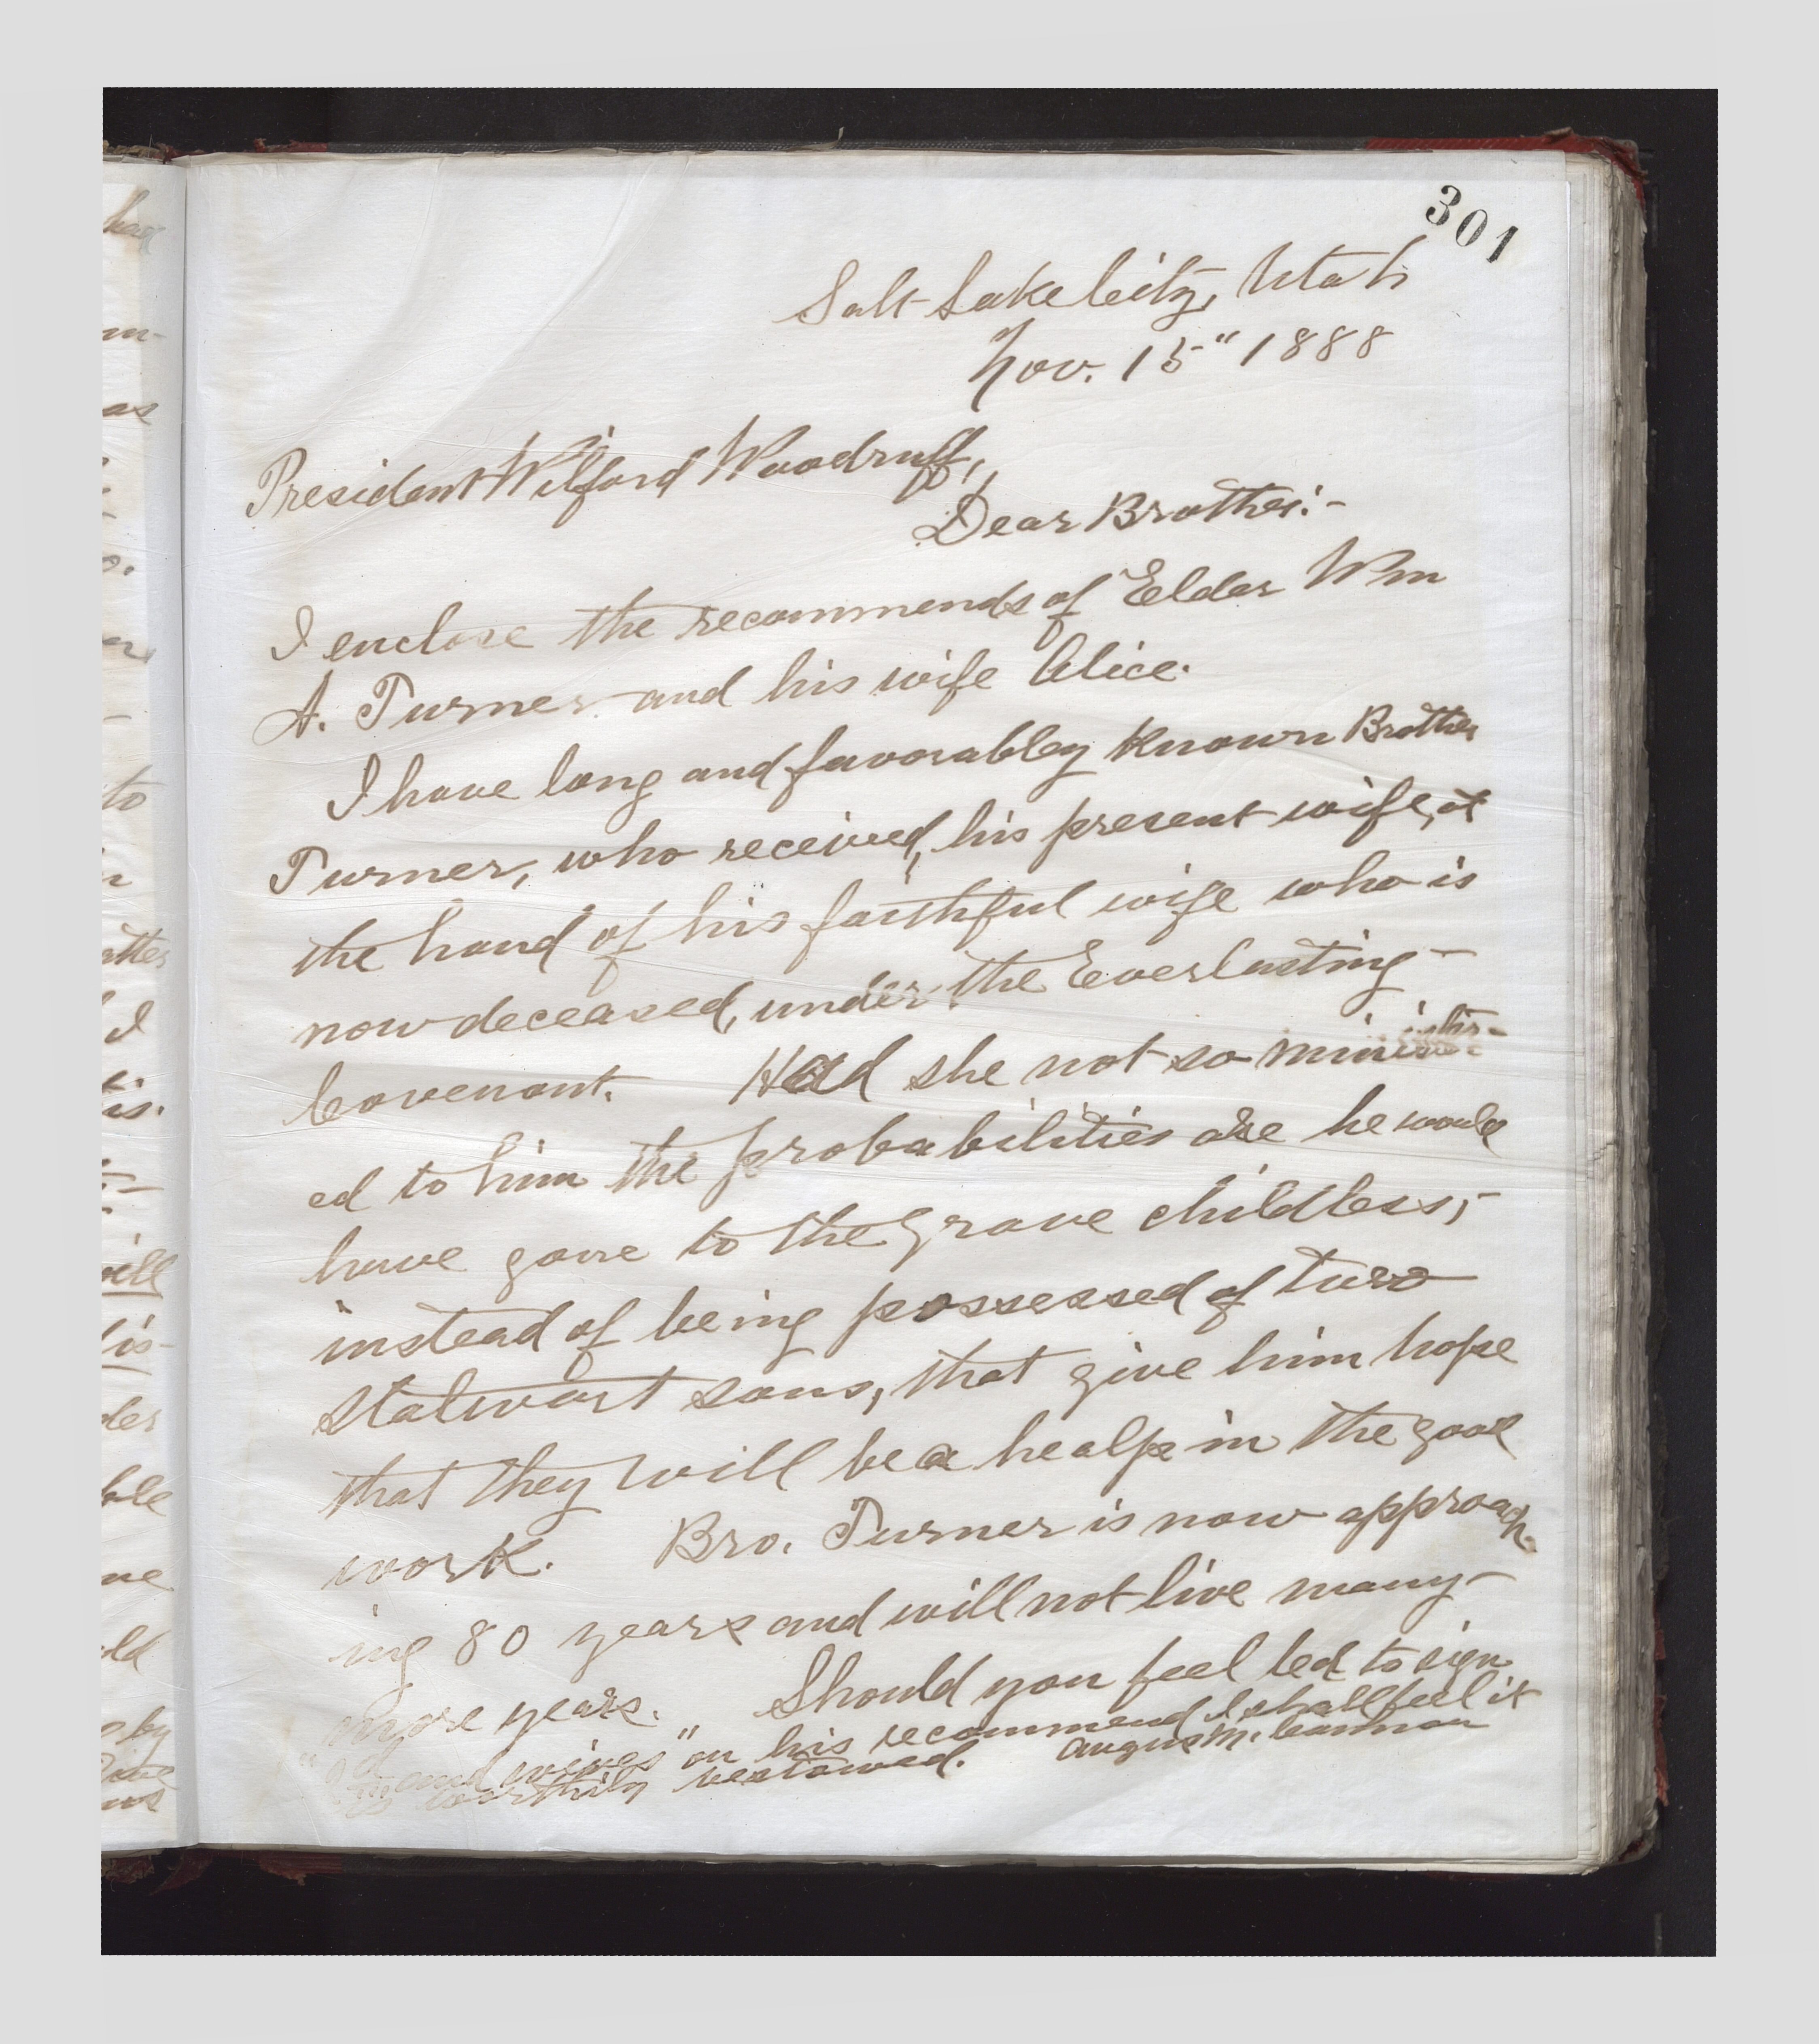 301
Salt Lake City, Utah
Nov. 15" 1888
President Wilford Woodruff,
Dear Brother:-
I enclose the recommends of Elder Wm
A. Turner and his wife Alice.
I have long and favorabley known Brother
Turner, who received, his present wife, at
the hand of his faithful wife who is
now deceased, under the Everlasting-
Covenant. Had she not so minister-
ed to him the probabilities are he would
have gone to the grave childless,-
instead of being possessed of two
stalwart sons, that give him hope
that they will be a healp in the good
work. Bro. Turner is now approach-
ing 80 years and will not live many-
more years. Should you feel led to sign
and wives" on his recommend I shall feel it
worthily bestowed. Angus M. Cannon
have
m-
as
to
I
is.
will
is-
ble
me
by